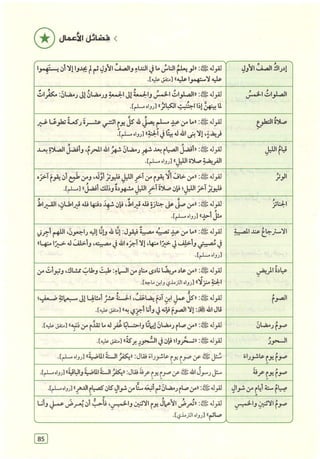 فضائل الأعمال
إدراك الصف الأول
لقوله ﷺ: «لو يعلم الناس ما في النداء والصف الأول ثم لم يجدوا إلا أن يستهموا
عليه لاستهموا عليه» [متفق عليه].
الصلوات الخمس
لقوله ﷺ: «الصلوات الخمس والجمعة إلى الجمعة ورمضان إلى رمضان: مكفرات
لما بينهن إذا اجتنبت الكبائر» [رواه مسلم].
صلاة التطوع
لقوله ﷺ: «ما من عبد مسلم يصلي لله كل يوم اثنتي عشرة ركعة تطوعا غير
فريضة، إلا بنى الله له بيتا في الجنة» [رواه مسلم].
قيام الليل
لقوله ﷺ: «أفضل الصيام بعد شهر رمضان شهر الله المحرم، وأفضل الصلاة بعد
الفريضة صلاة الليل» [رواه مسلم].
الوتر
لقوله ﷺ: «من خاف ألا يقوم من آخر الليل فليوتر أوله، ومن طمع أن يقوم آخره
فليوتر آخر الليل، فإن صلاة آخر الليل مشهودة وذلك أفضل» [مسلم].
الجنائز
لقوله ﷺ: «من صلى على جنازة فله قيراط، فإن شهد دفنها فله قيراطان، القيراط
مثل أحد» [رواه مسلم].
الاسترجاع عند المصيبة
لقوله ﷺ: «ما من عبد تصيبه مصيبة فيقول: إنا لله وإنا إليه راجعون، اللهم أجرني
في مصيبتي وأخلف لي خيرا منها، إلا أجره الله في مصيبته، وأخلف له خيرا منها»
[رواه مسلم].
عيادة المريض
لقوله ﷺ: «من عاد مريضا نادى مناد من السماء: طبت وطاب ممشاك، وتبوأت من
الجنة منزلا» [رواه الترمذي وابن ماجه].
الصوم
لقوله ﷺ: «كل عمل ابن آدم يضاعف، الحسنة عشر أمثالها إلى سبعمائة ضعف،
قال الله: إلا الصوم فإنه لي وأنا أجزي به» [متفق عليه].
صوم رمضان
لقوله ﷺ: «من صام رمضان إيمانا واحتسابا غفر له ما تقدم من ذنبه» [متفق عليه].
السحور
لقوله ﷺ: «تسحروا؛ فإن في السحور بركة» [متفق عليه].
صوم يوم عاشوراء
سئل ﷺ عن صوم يوم عاشوراء فقال: «يكفر السنة الماضية» [رواه مسلم].
صوم يوم عرفة
سئل رسول الله ﷺ عن صوم يوم عرفة فقال: «يكفر السنة الماضية والباقية» [رواه مسلم].
صيام ستة أيام من شوال
لقوله ﷺ: «من صام رمضان ثم أتبعه ستا من شوال كان كصيام الدهر» [رواه مسلم].
صوم الاثنين والخميس
لقوله ﷺ: «تعرض الأعمال يوم الاثنين والخميس، فأحب أن يعرض عملي وأنا
صائم» [رواه الترمذي].
85